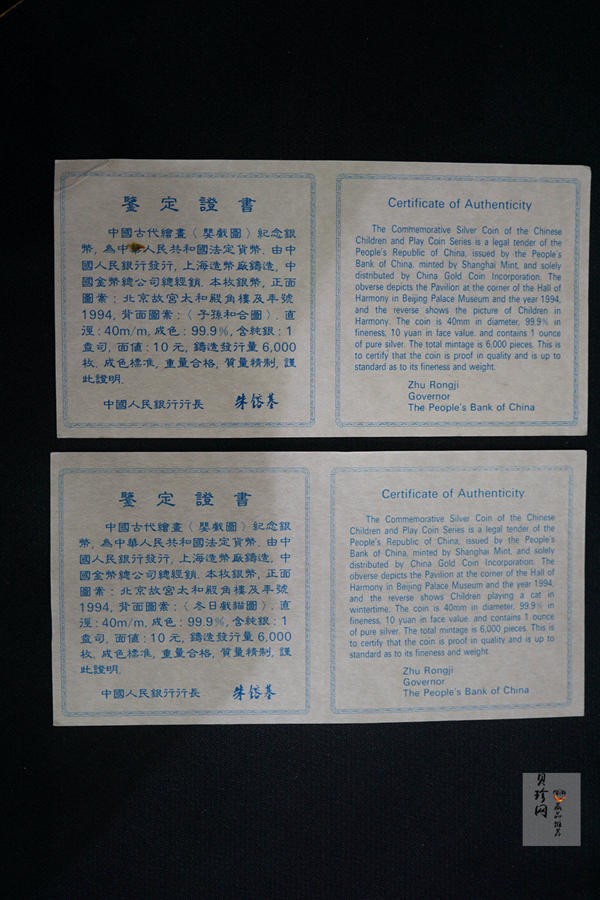 鑒定證書
中國古代繪畫〈嬰戲圖〉紀念銀
幣, 為中華人民共和國法定貨幣. 由中
國人民銀行發行, 上海造幣廠鑄造, 中
國金幣總公司總經銷. 本枚銀幣, 正面
圖案: 北京故宮太和殿角樓及年號
1994, 背面圖案:〈子孫和合圖〉. 直
徑: 40m/m, 成色: 99.9%, 含純銀: 1
盎司. 面值: 10元, 鑄造發行量6,000
枚. 成色標准, 重量合格, 質量精制, 謹
此證明.
中國人民銀行行長 朱镕基
Certificate of Authenticity
The Commemorative Silver Coin of the Chinese
Children and Play Coin Series is a legal tender of the
People's Republic of China, issued by the People's
Bank of China, minted by Shanghai Mint, and solely
distributed by China Gold Coin Incorporation. The
obverse depicts the Pavilion at the corner of the Hall of
Harmony in Beijing Palace Museum and the year 1994,
and the reverse shows the picture of Children in
Harmony. The coin is 40mm in diameter, 99.9% in
fineness, 10 yuan in face value, and contains 1 ounce
of pure silver. The total mintage is 6,000 pieces. This is
to certify that the coin is proof in quality and is up to
standard as to its fineness and weight.
Zhu Rongji
Governor
The People's Bank of China
鑒定證書
中國古代繪畫〈嬰戲圖〉紀念銀
幣, 為中華人民共和國法定貨幣. 由中
國人民銀行發行, 上海造幣廠鑄造, 中
國金幣總公司總經銷. 本枚銀幣, 正面
圖案: 北京故宮太和殿角樓及年號
1994, 背面圖案:〈冬日戲貓圖〉. 直
徑: 40m/m, 成色: 99.9%, 含純銀: 1
盎司. 面值: 10元, 鑄造發行量6,000
枚. 成色標准, 重量合格, 質量精制, 謹
此證明.
中國人民銀行行長 朱镕基
Certificate of Authenticity
The Commemorative Silver Coin of the Chinese
Children and Play Coin Series is a legal tender of the
People's Republic of China, issued by the People's
Bank of China, minted by Shanghai Mint, and solely
distributed by China Gold Coin Incorporation. The
obverse depicts the Pavilion at the corner of the Hall of
Harmony in Beijing Palace Museum and the year 1994,
and the reverse shows Children playing a cat in
wintertime. The coin is 40mm in diameter, 99.9% in
fineness, 10 yuan in face value, and contains 1 ounce
of pure silver. The total mintage is 6,000 pieces. This is
to certify that the coin is proof in quality and is up to
standard as to its fineness and weight.
Zhu Rongji
Governor
The People's Bank of China
贝珍网
藏品推荐